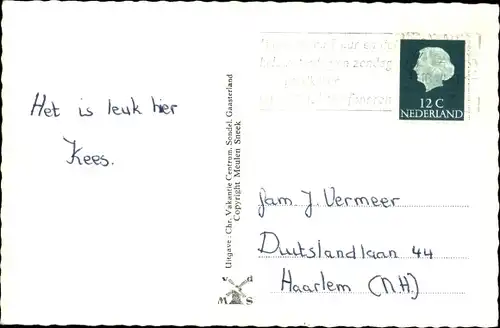 Het is leuk hier
Kees.
Uitgave: Chr. Vakantie Centrum, Sondel, Gaasterland
Copyright Meulen Sneek
v d
M S
12 C
NEDERLAND
fam. J. Vermeer
Duitslandlaan 44
Haarlem (N.H.)